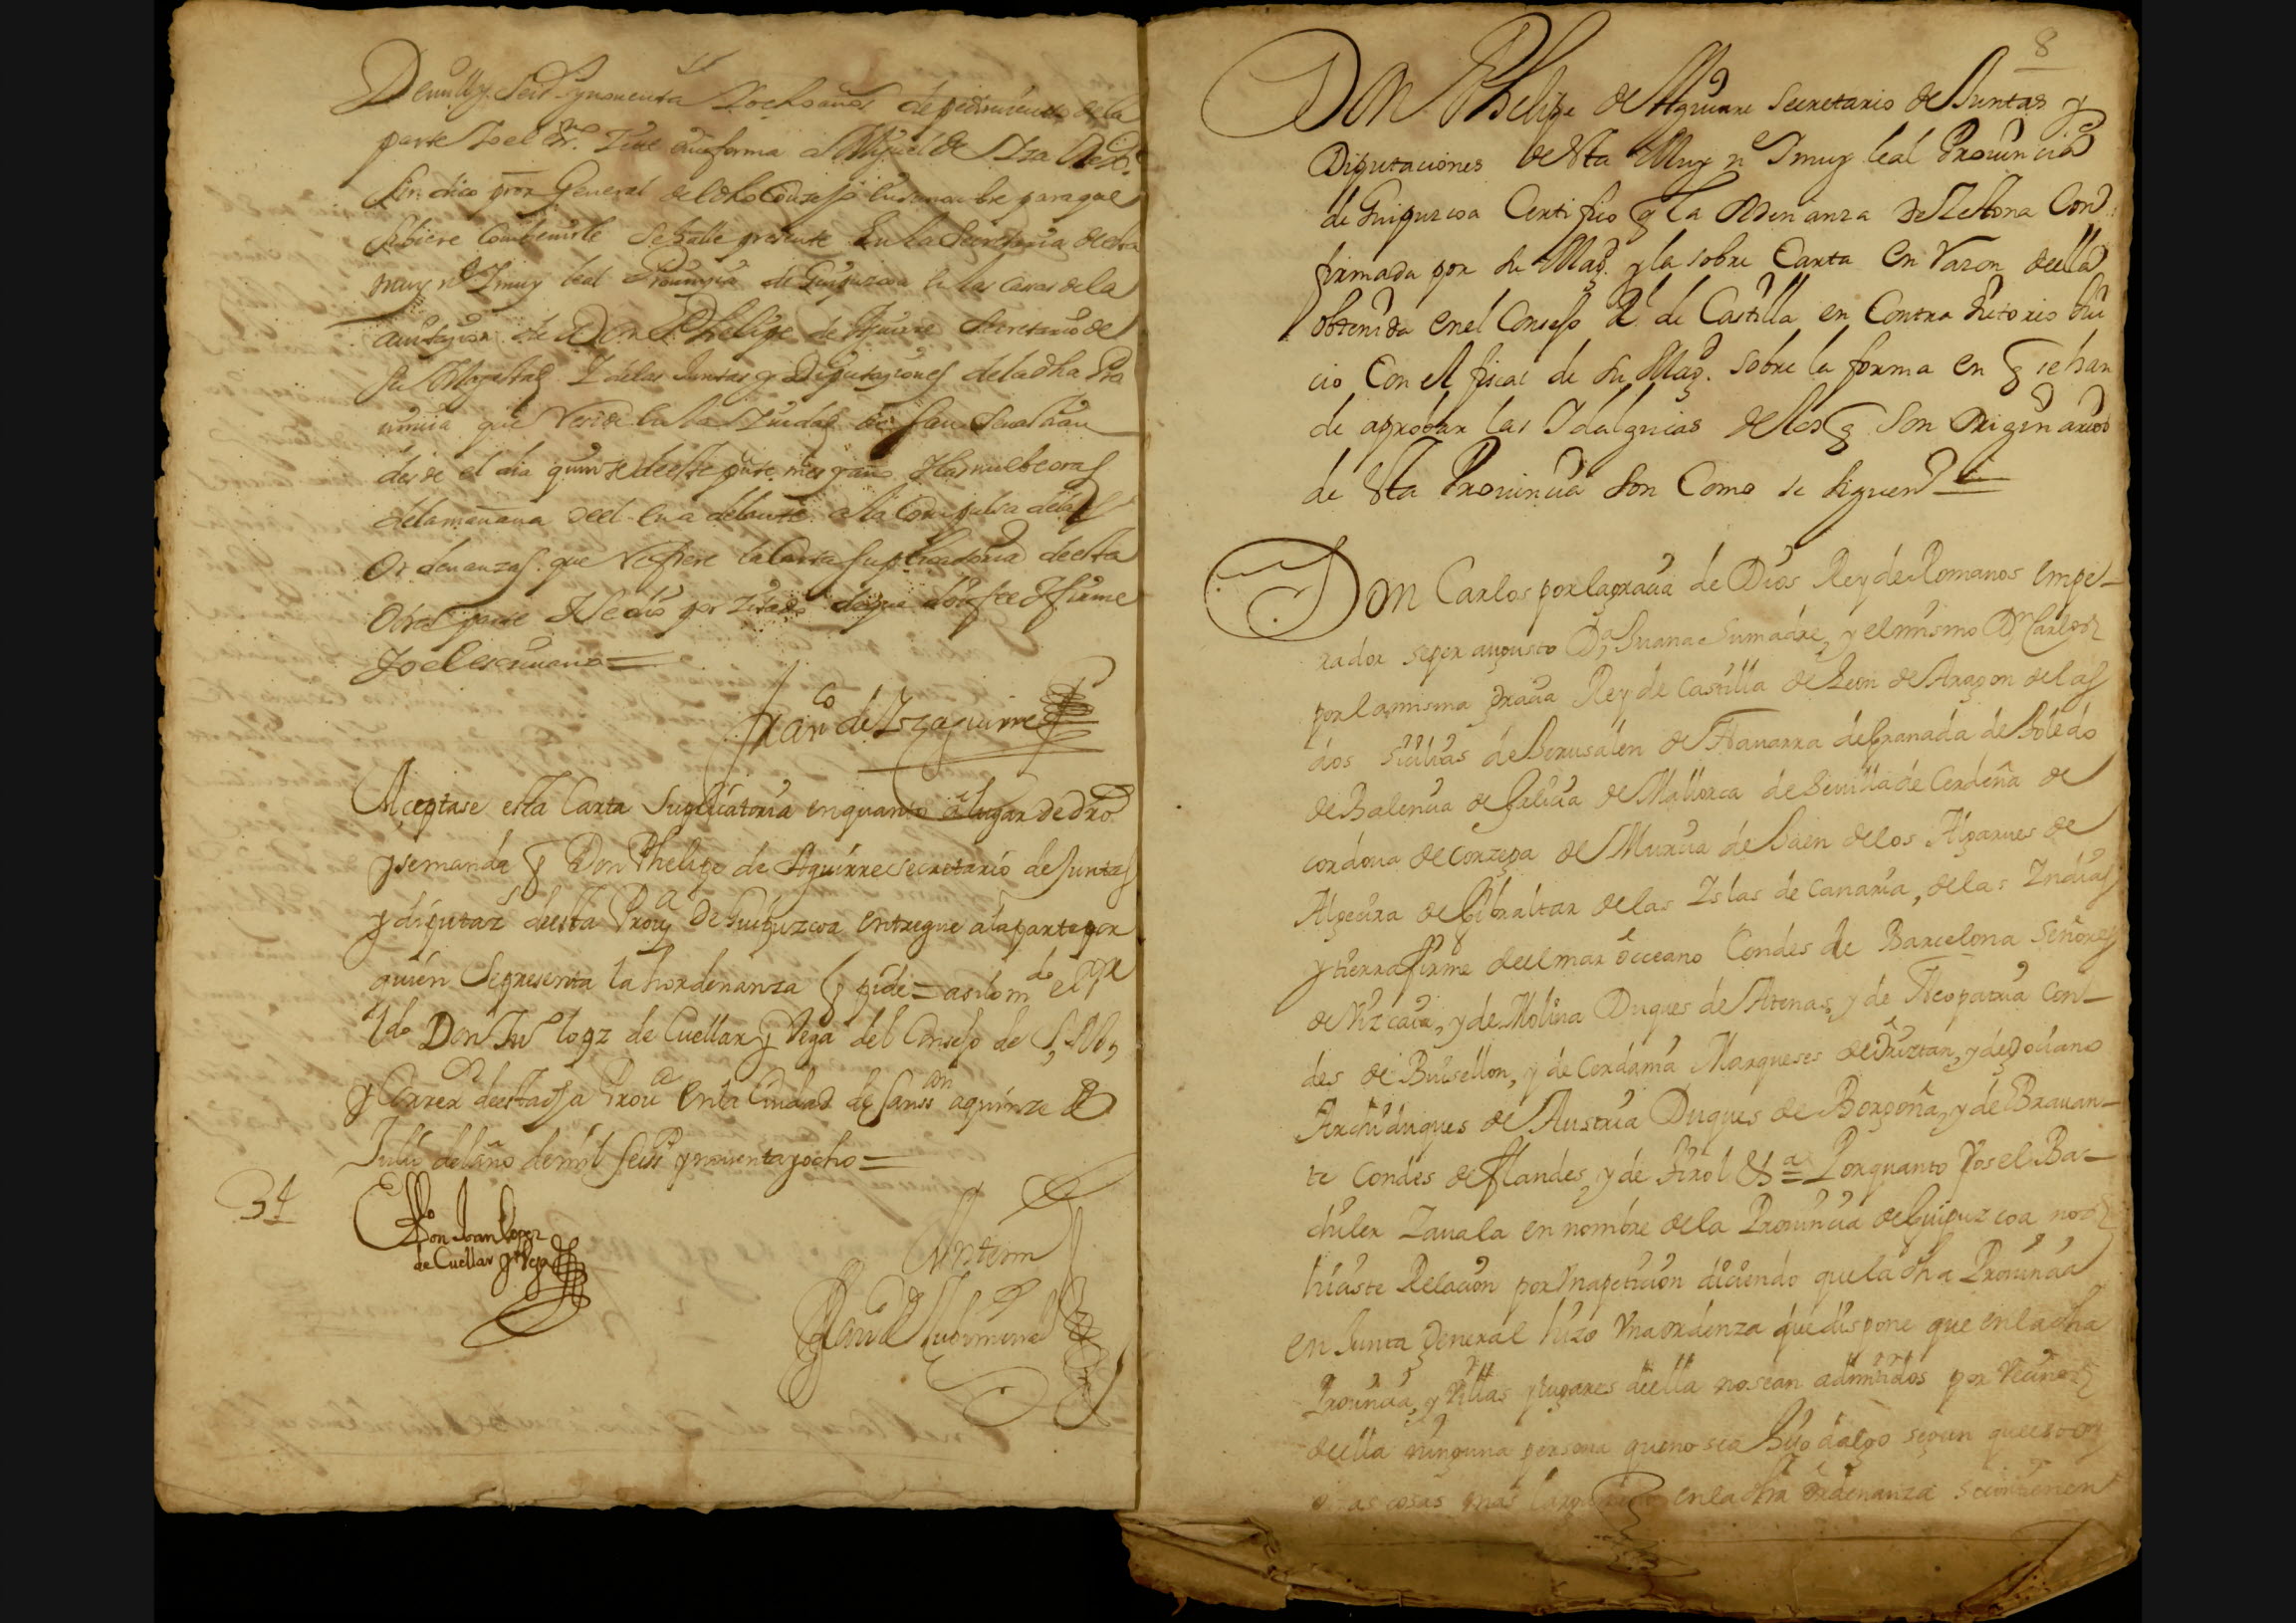 De mill y Seis y nouenta y ocho años de pedimiento de la
parte Yo el Sno. Zite en forma a Miguel de
Sindico pror General del dho Conzejo en su nombre para que
si biere combenirle se halle presente En la Secretaria de esta
muy n. I muy leal Prouinçia de Guipuzcoa en las casas de la
auitaçion de Don Phelipe de Aguirre Secretario de
Su Magestad I de las Juntas y Diputaçiones de la dha Pro
uinçia que Reside en la Ziudad de san Seuastian
desde el dia quinze de este pnte mes y año I las nuebe oras
de la mañana de el en adelante a la Compulsa de las
Ordenanzas que Refiere la Carta suplicatoria de esta
Otra parte I se dio por Zitado de que doi fee I firme
Yo el escriuano =
Franco de Yzaguirre
Aceptase esta Carta Suplicatoria en quanto a lugar de dro
y se manda q Don Phelipe de Aguirre secretario de Juntas
y diputaz.s de esta Proua de Guipuzcoa entregue a la parte por
quien se presenta la hordenanza q pide = asi lo mdo el Sr
Ldo Don Ju.o lopz de Cuellar y Vega del Consejo de S. M.
y Correr de esta dha Proua en la Ciudad de san ssan a quinze de
Julio del año de mil seiss y nouenta y ocho =
Don Joan Lopez
de Cuellar y Vega
Ante mi
34
8
Don Phelipe de Aguirre Secretario de Juntas y
Diputaciones de Esta Muy n. I muy leal Prouincia
de Guipuzcoa Certifico q La Ordenanza de Zestona Con
firmada por su Magd. y la sobre Carta en razon de ella
obtenida en el Consejo Rl. de Castilla en Contraditorio Jui
cio Con el fiscal de su Magd. sobre la forma en q se han
de aprobar las Idalguias de los q Son Originarios
de Esta Prouincia son Como se siguen =
Don Carlos por la gracia de Dios Rey de Romanos empe-
rador seper augusto Da. Juana su madre, y el mismo Dn Carlos
por la misma gracia Rey de Castilla de Leon de Aragon de las
dos sicilias de Jerusalen de Nauarra de Granada de Toledo
de Balencia de Galicia de Mallorca de Seuilla de Cerdeña de
cordoua de corzega de Murcia de Jaen de los Algarues de
Algecira de Gibraltar de las Islas de Canaria, de las Indias
y tierra firme de el mar occeano Condes de Barcelona Señores
de Vizcaia, y de Molina Duques de Atenas, y de Neopatria Con-
des de Ruisellon, y de Cerdania Marqueses de Oristan, y de Gociano
Archiduques de Austria Duques de Borgoña, y de Brauan-
te Condes de flandes, y de Tirol &a Por quanto Vos el Ba-
chiler Zauala en nombre de la Prouincia de Guipuzcoa nos
hiciste Relacion por Vna peticion diciendo que la dha Prouincia
en Junta general hizo Vna ordenza que dispone que en la dha
Prouincia, y Villas y lugares de ella no sean admitidos por Vecinos
de ella ninguna persona que no sea hijo dalgo segun que esto y
otras cosas mas largamente en la dha ordenanza se contienen